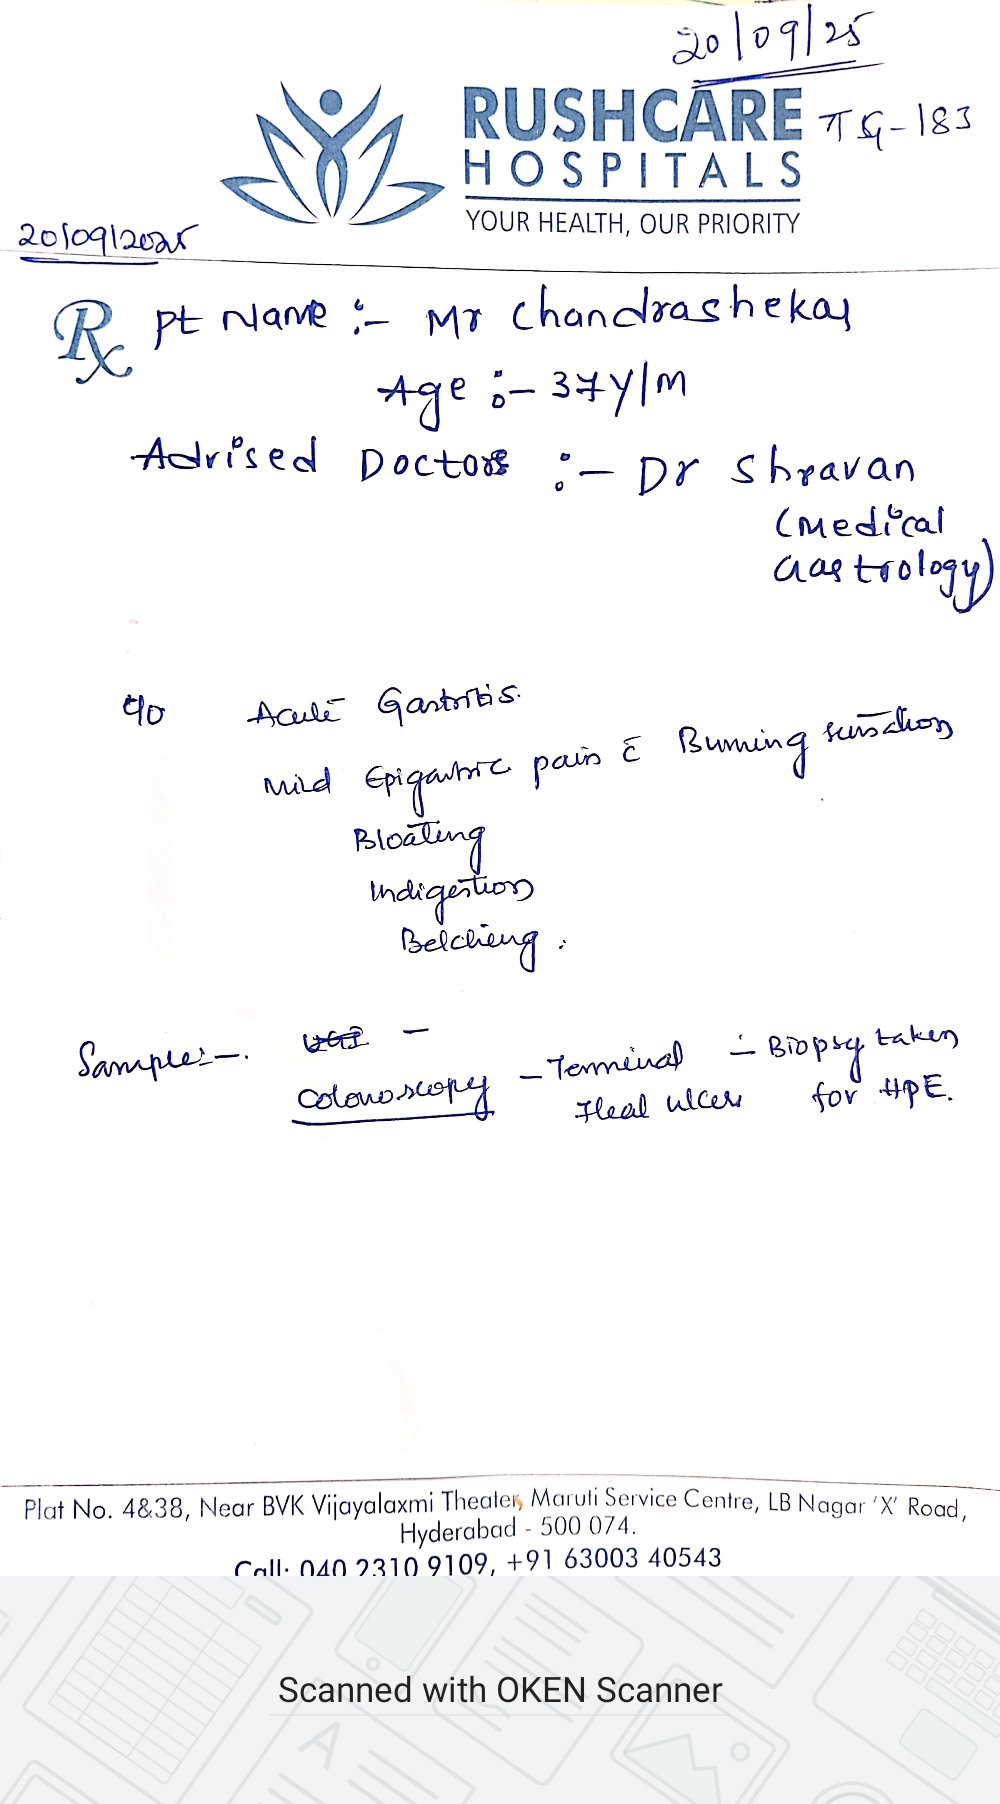 20/09/25
RUSHCARE
HOSPITALS
YOUR HEALTH, OUR PRIORITY
TG-183
20/09/2025
Rx Pt Name :- Mr Chandrashekar
Age :- 37Y/M
Advised Doctors :- Dr Shravan
(Medical
Gastrology)
c/o Acute Gastritis.
Mild Epigastric pain c̄ Burning sensation
Bloating
Indigestion
Belching.
Sample:-. UGI -
Colonoscopy - Terminal - Biopsy taken
Ileal ulcers for HPE.
Plat No. 4&38, Near BVK Vijayalaxmi Theater, Maruti Service Centre, LB Nagar 'X' Road,
Hyderabad - 500 074.
Call: 040 2310 9109, +91 63003 40543
Scanned with OKEN Scanner